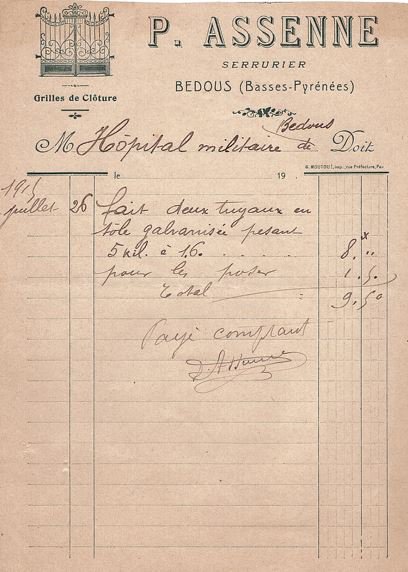 P. ASSENNE
SERRURIER
BEDOUS (Basses-Pyrénées)
Grilles de Clôture
M Hôpital militaire de Bedous Doit
G. MOUTOU, imp., rue Préfecture, Pau
le 19
1915
juillet 26 fait deux tuyaux en
tôle galvanisée pesant
5 kil. à 1.6. . . . . 8. "
pour les poser 1.5.
Total : 9.50
Payé comptant
P. Assenne